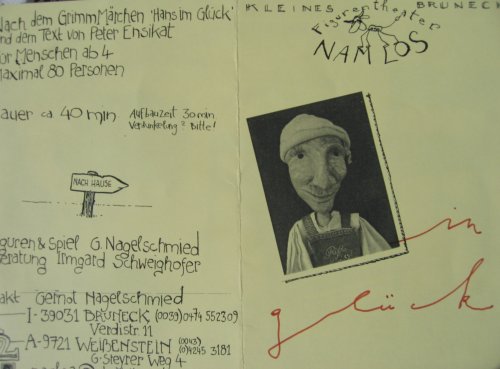 Nach dem Grimm Märchen 'Hans im Glück'
und dem Text von Peter Ensikat
für Menschen ab 4
maximal 80 Personen
Dauer ca 40 min
Aufbauzeit 30 min
Verdunkelung? Bitte!
NACH HAUSE
Figuren & Spiel G. Nagelschmied
Beratung Irmgard Schweighofer
Gernot Nagelschmied
I-39031 BRUNECK (0039) 0474 552309
Verdistr 11
A-9721 WEIßENSTEIN (0043)
0)4245 3181
G-Steyrer Weg 4
KLEINES BRUNECK
Figurentheater
NAMLOS
in
glück